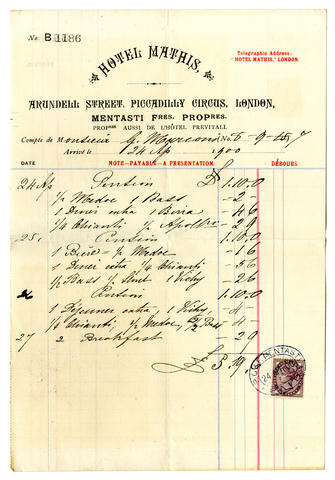 No. B 1186
HOTEL MATHIS,
Telegraphic Address:
"HOTEL MATHIS," LONDON
ARUNDELL STREET, PICCADILLY CIRCUS, LONDON,
MENTASTI FRES. PROPRES.
PROPRES AUSSI DE L'HÔTEL PREVITALI.
Compte de Monsieur G. No. 6-9-
Arrivé le 24 1900
DATE NOTE-PAYABLE-A PRESENTATION. DÉBOURS.
24 Pension £ 1.10.0
1/2 Medoc 1 Bass 2
1 Diner extra 1 Bierre 4.6
1/4 Chianti 1/2 Apollis 2.9
25 Pension 1.10.0
1 Bière 1/2 Medoc 1.6
1 Diner extra 1/4 Chianti 3.6
1/2 Bass 1/2 1 Vichy 2.6
Pension 1.10.0
1 Déjeuner extra, 1 Vichy, 4
Chianti, 1/2 Medoc, Bass 4
27 2 Breakfast 2.9
£ 5.19.
MENTASTI
24